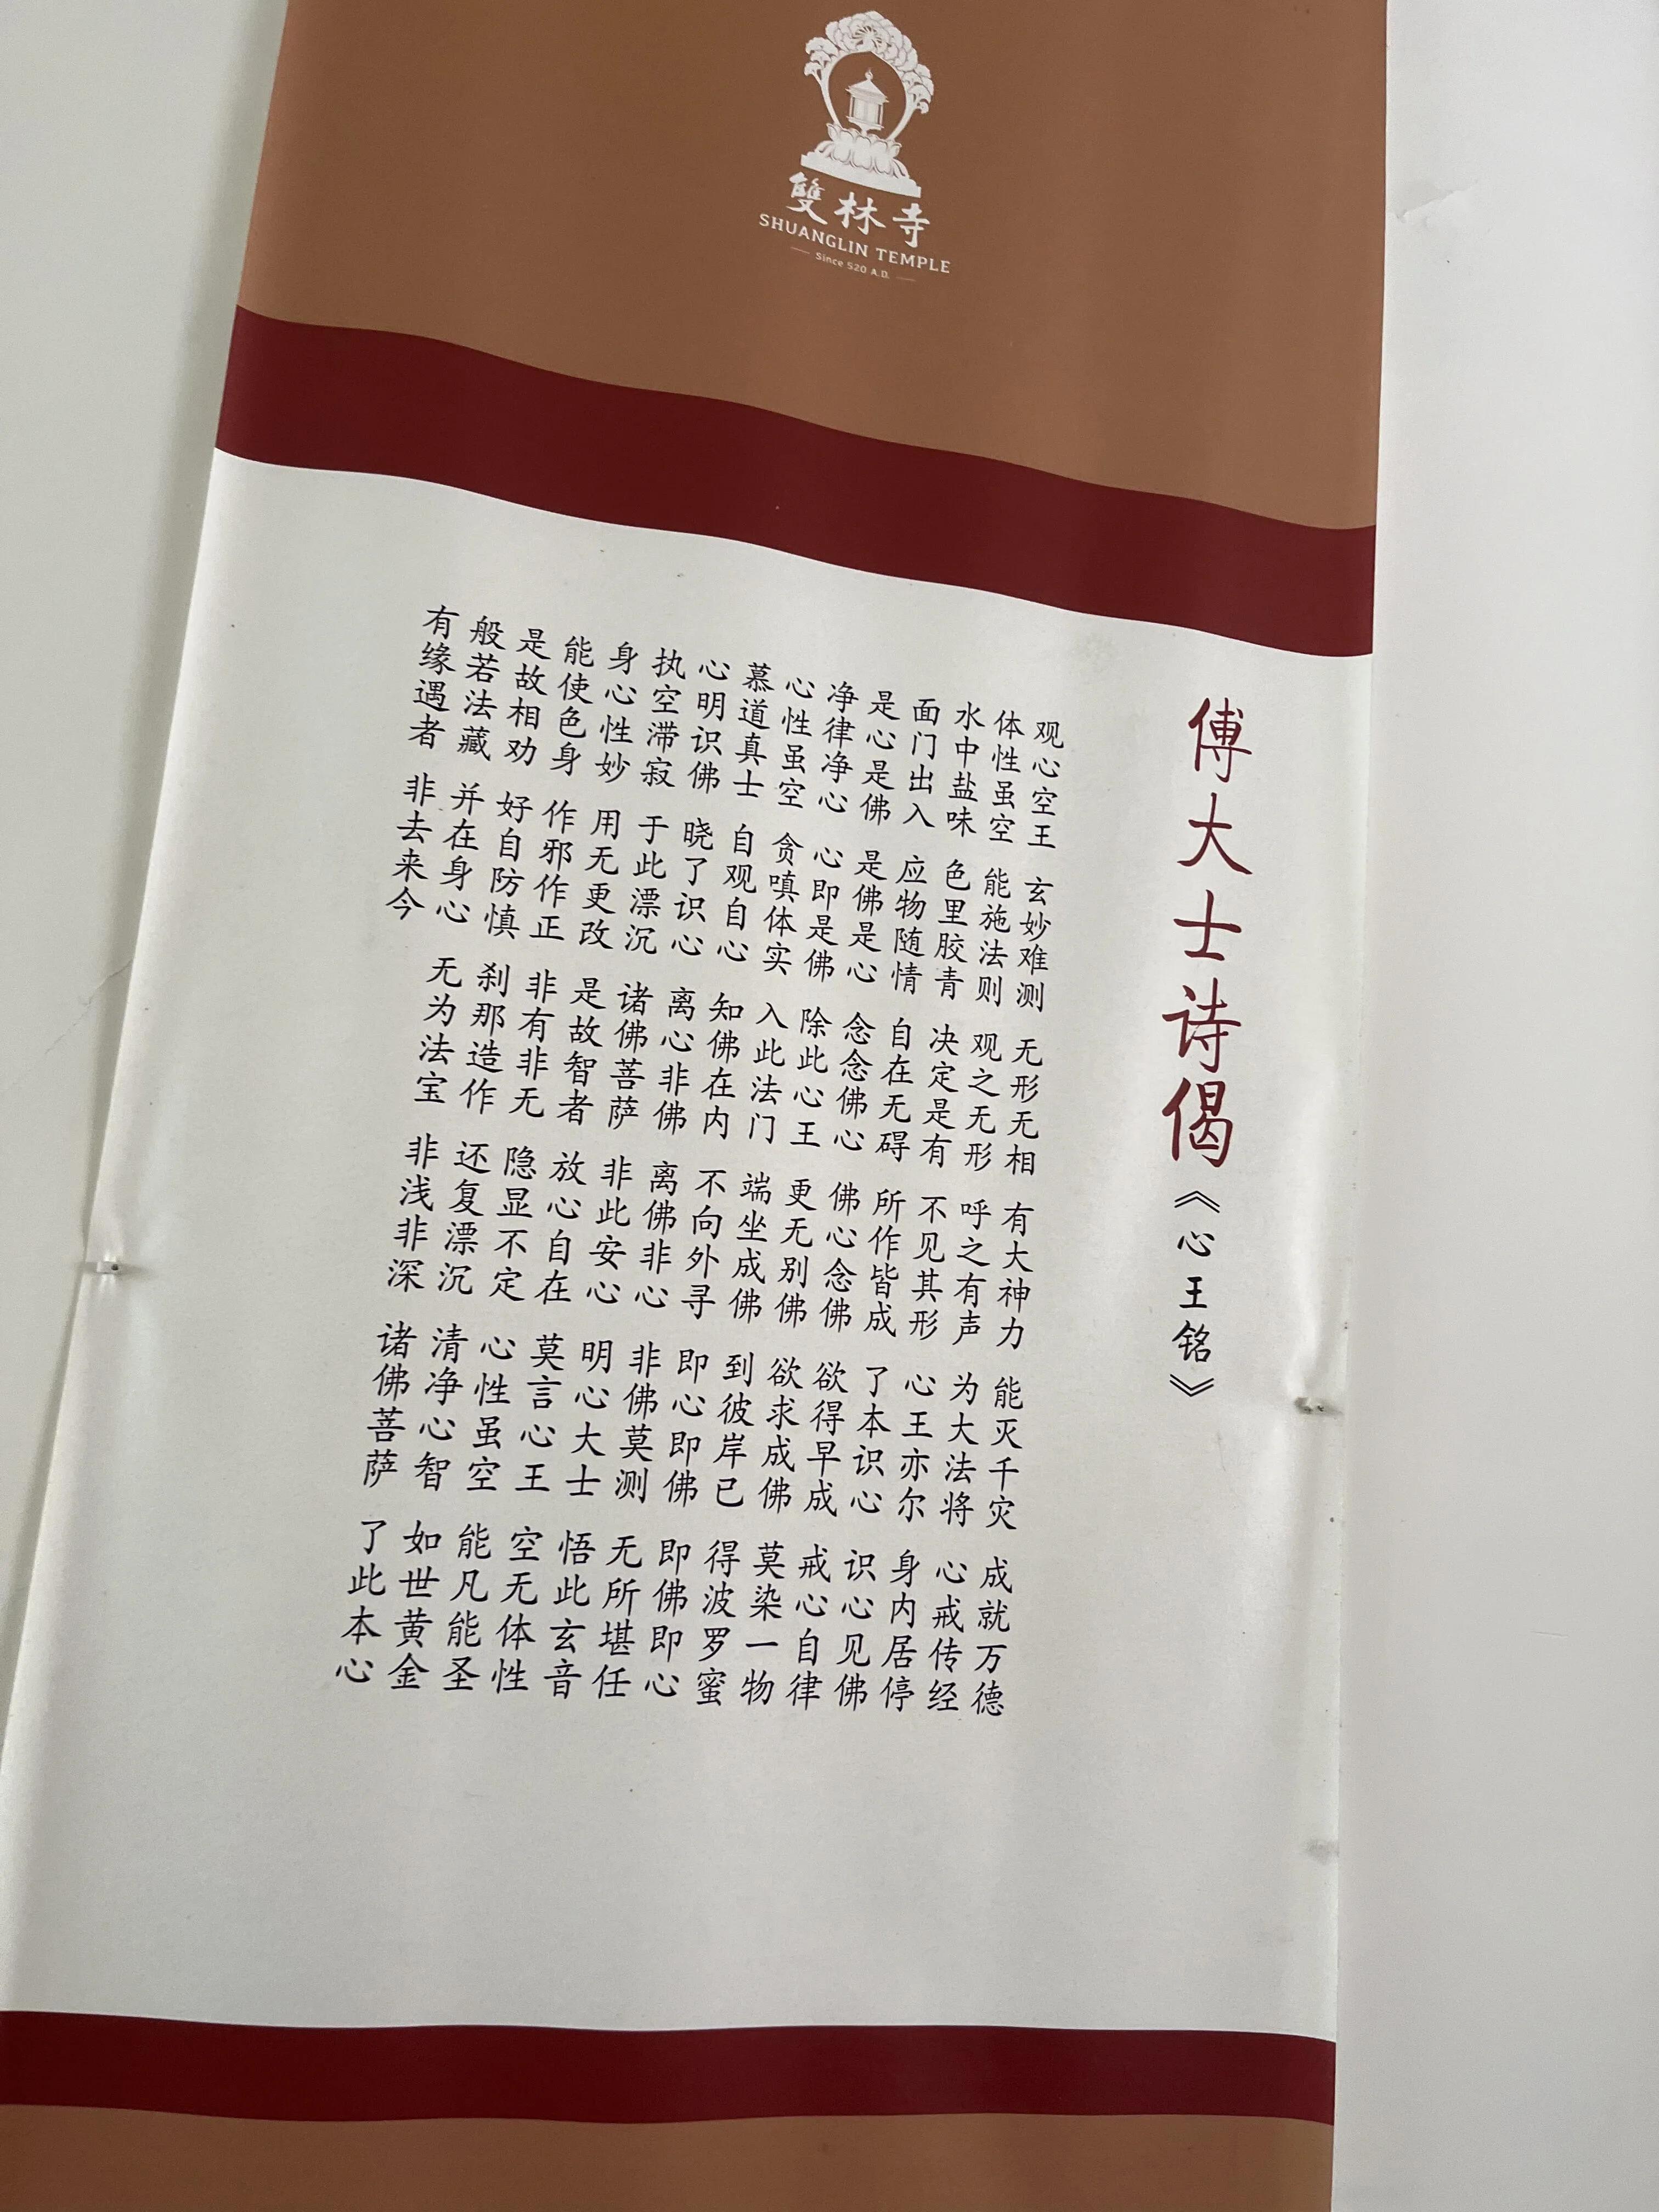 雙林寺
SHUANGLIN TEMPLE
Since 520 A.D.
傅大士诗偈《心王铭》
观心空王 玄妙难测 无形无相 有大神力 能灭千灾 成就万德
体性虽空 能施法则 观之无形 呼之有声 为大法将 心戒传经
水中盐味 色里胶青 决定是有 不见其形 心王亦尔 身内居停
面门出入 应物随情 自在无碍 所作皆成 了本识心 识心见佛
是心是佛 是佛是心 念念佛心 佛心念佛 欲得早成 戒心自律
净律净心 心即是佛 除此心王 更无别佛 欲求成佛 莫染一物
心性虽空 贪嗔体实 入此法门 端坐成佛 到彼岸已 得波罗蜜
慕道真士 自观自心 知佛在内 不向外寻 即心即佛 即佛即心
心明识佛 晓了识心 离心非佛 离佛非心 非佛莫测 无所堪任
执空滞寂 于此漂沉 诸佛菩萨 非此安心 明心大士 悟此玄音
身心性妙 用无更改 是故智者 放心自在 莫言心王 空无体性
能使色身 作邪作正 非有非无 隐显不定 心性虽空 能凡能圣
是故相劝 好自防慎 刹那造作 还复漂沉 清净心智 如世黄金
般若法藏 并在身心 无为法宝 非浅非深 诸佛菩萨 了此本心
有缘遇者 非去来今